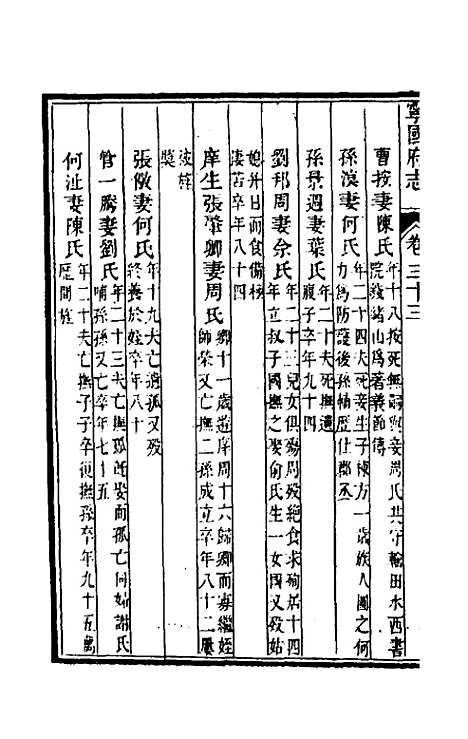 寧國府志 卷三十三
曹按妻陳氏 年十八按死無嗣與妾周氏共守輸田水西書
院 緒山爲著義節傳
孫滾妻何氏 年二十四夫死妾生子棟方一歲族人圖之何
力爲防護後孫 歷仕 丞
孫景週妻葉氏 年二十夫死撫遺
腹子卒年九十四
劉邦周妻余氏 年二十三兒女俱殤周歿絶食求殉居十四
年立叔子國撫之娶俞氏生一女國又歿姑
媳并日而食備極
凄苦卒年八十四
庠生張肇卿妻周氏 卿十一歲遊庠周十六歸卿而寡繼姪
師 又亡撫二孫成立卒年八十二屢
被旌
獎
張傲妻何氏 年十九夫亡遺孤又歿
終養於姪卒年八十
管一騰妻劉氏 年二十三夫亡撫孤 娶而孤亡同婦謝氏
哺孫孫又亡卒年七十五
何沚妻陳氏 年二十夫亡撫子子卒復撫孫卒年九十五萬
歷間旌